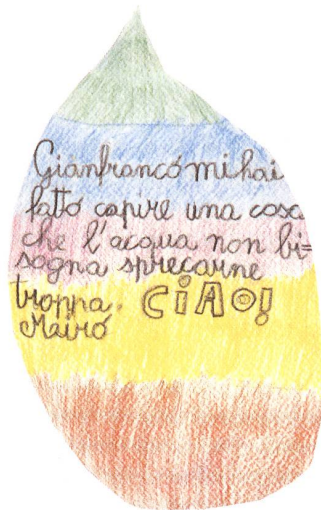 Gianfranco mi hai
fatto capire una cosa
che l'acqua non bi=
sogna sprecarne
troppa. CiAO!
Mairo